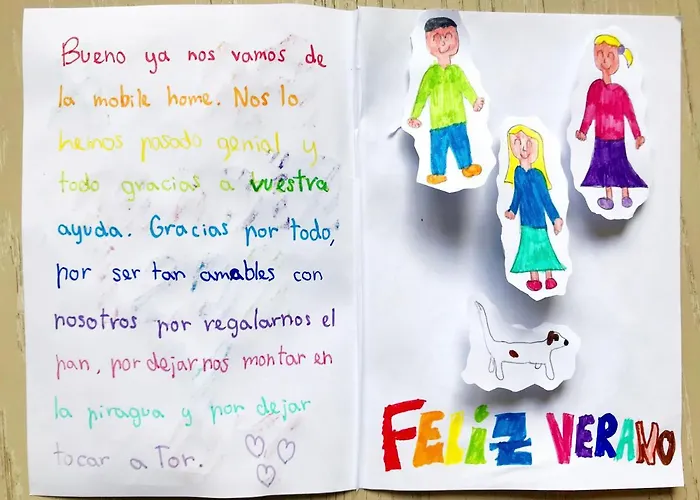 Bueno ya nos vamos de
la mobile home. Nos lo
hemos pasado genial y
todo gracias a vuestra
ayuda. Gracias por todo,
por ser tan amables con
nosotros por regalarnos el
pan, por dejarnos montar en
la piragua y por dejar
tocar a Tor.
FELIZ VERANO